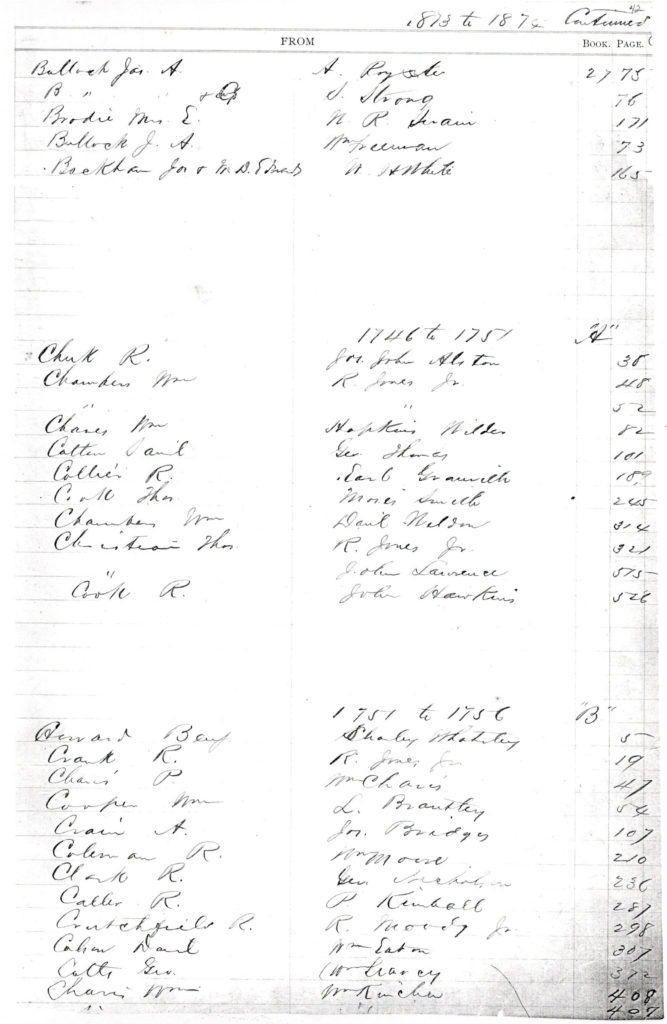 42
1873 to 1874 Continued
FROM BOOK. PAGE.
Bullock Jos. A. A. Royster 27 75
B " " & S. Strong 76
Brodie Mrs. E. N. R. Swain 171
Bullock J. A. Wm Freeman 73
Beckham Jos & M. D. Edwards W. H White 165
1746 to 1751 "A"
R. Jos. John Alston 38
Chambers Wm R. Jones Jr. 48
" " 52
Chaves Wm Hopkins Wilder 82
Cotten Geo. Thomas 101
Collier R. Earl Granville 189
Cook Thos Moses Smith 245
Chambers Wm Danl Weldon 314
Christian Thos. R. Jones Jr. 321
" John Lawrence 515
Cook R. John Hawkins 526
1751 to 1756 "B"
Benj 5
Crank R. R. Jones Jr 19
Chavis P Wm Chavis 47
Cooper Wm L. Brantley 54
Crain A. Jos. Bridges 107
Coleman R. Wm Moore 210
Clark R. Geo Nicholson 236
Caller R. P Kimball 287
Crutchfield R. R. Moody Jr 298
Danl Wm Eaton 307
Cotts Geo. 312
Chavis Wm Wm Kinchen 408
" " 407